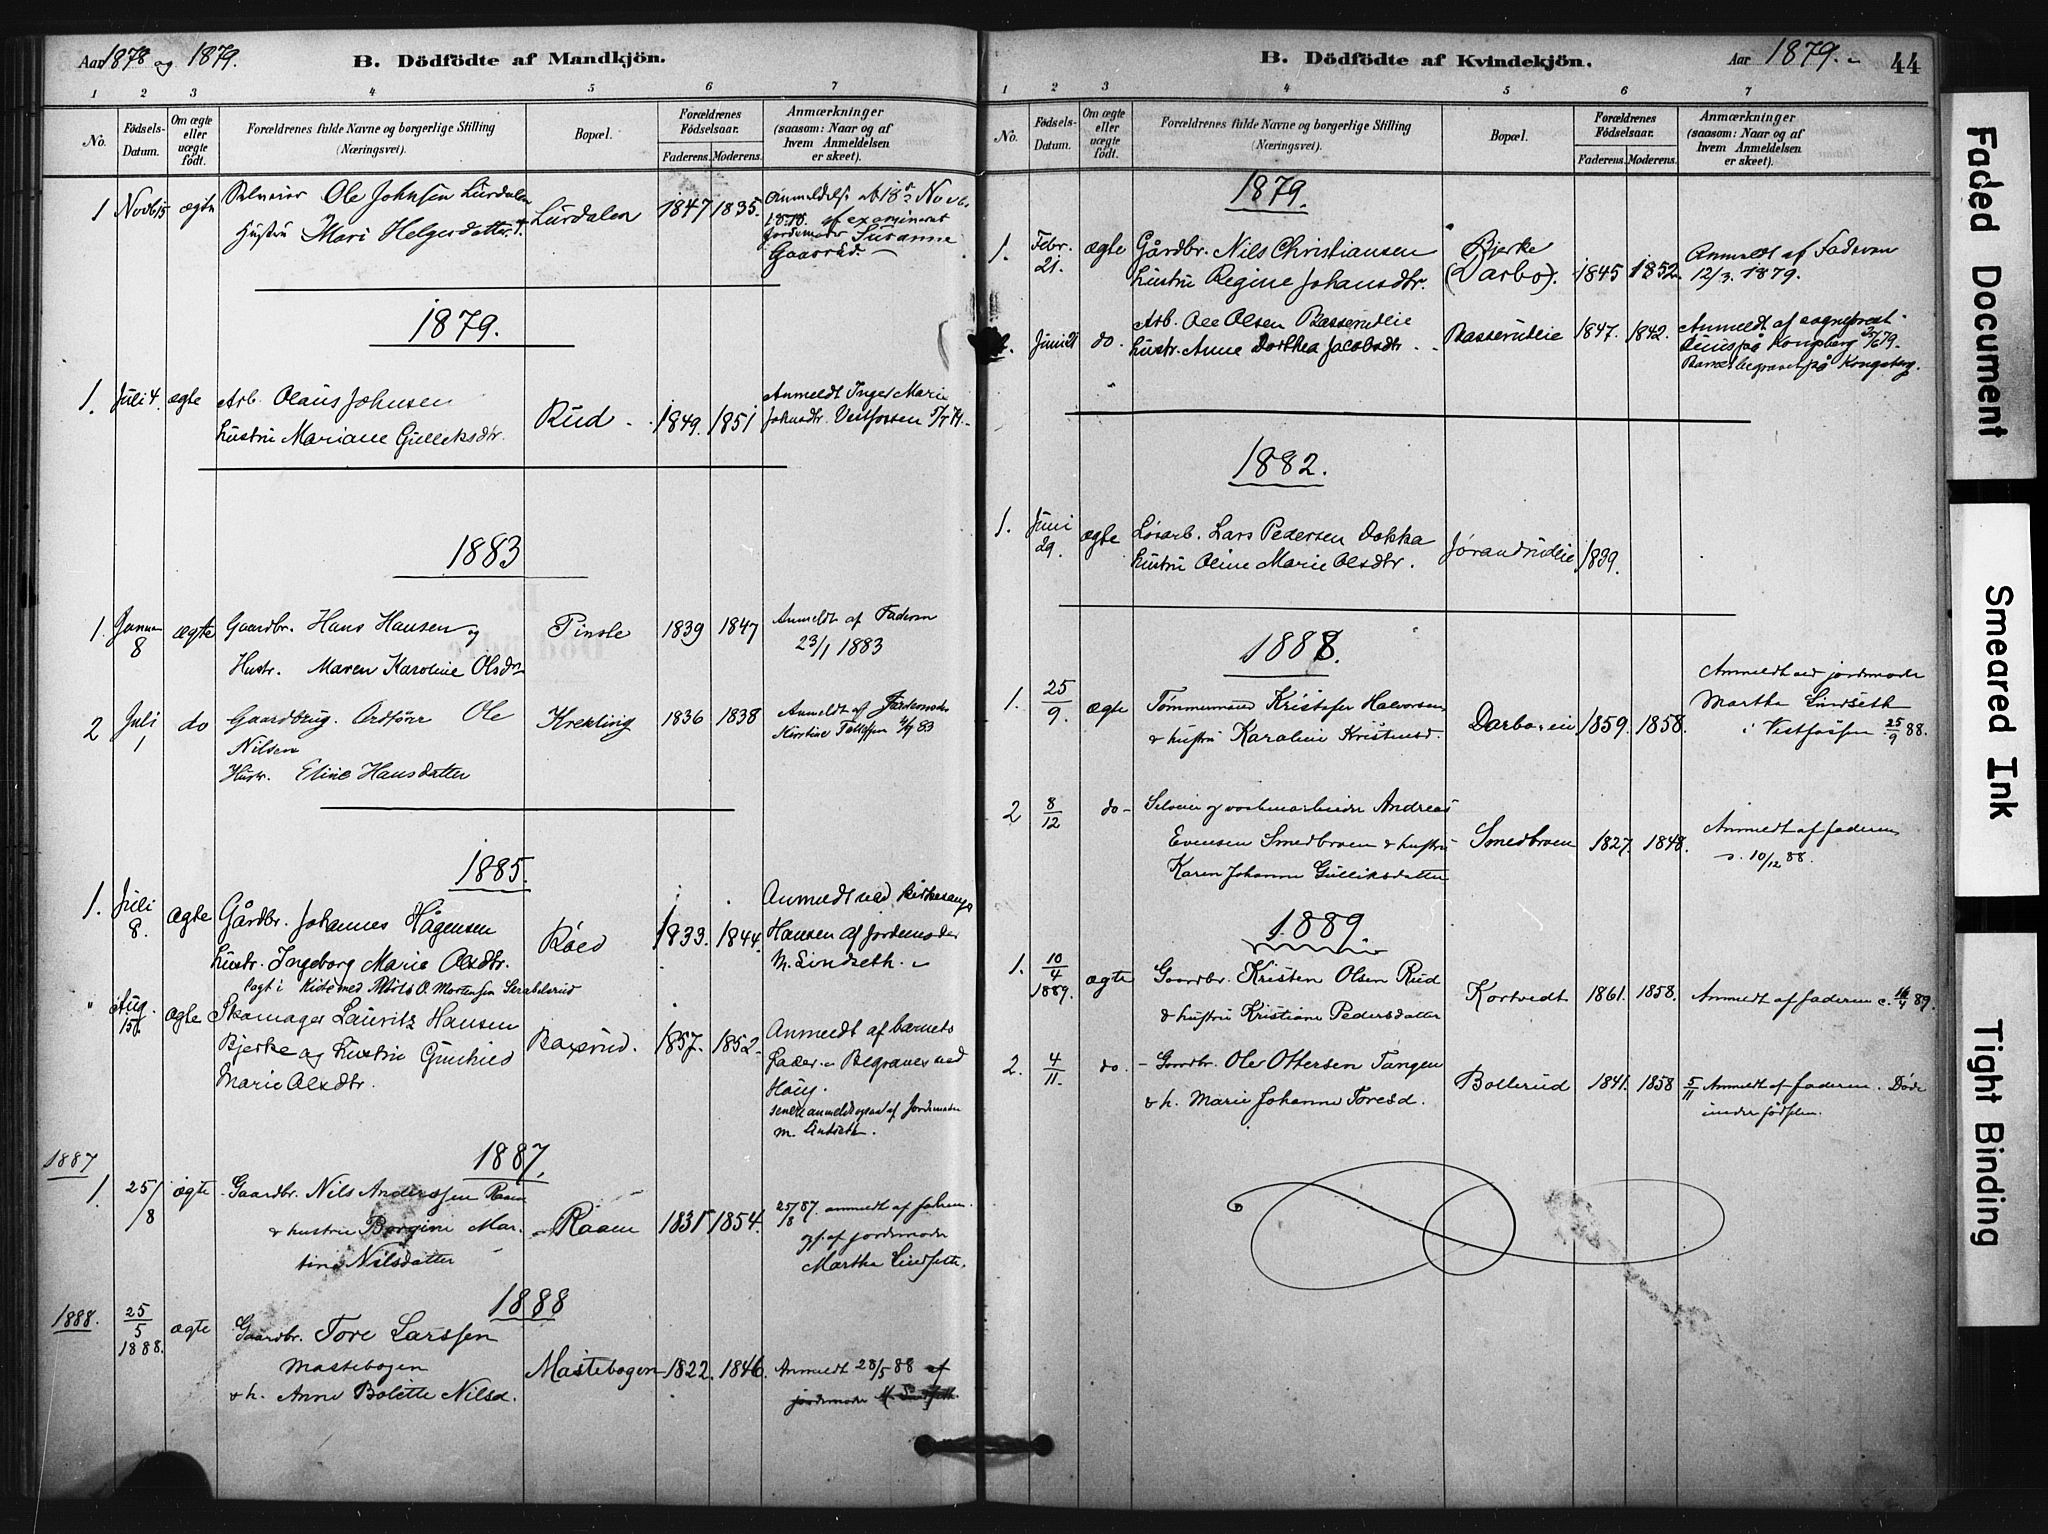 Aar 1878 og 1879.
B. Dödfödte af Mandkjön.
1 2 3 4 5 6 7
No.
Födsels-Datum.
Om ægte eller uægte födt.
Forældrenes fulde Navne og borgerlige Stilling
(Næringsvei).
Bopæl.
Forældrenes Födselsaar.
Faderens. Moderens.
Anmærkninger
(saasom: Naar og af
hvem Anmeldelsen
er skeet).
1 Novb 15 ægte Ole Johnsen Lurdalen Lurdalen 1847 1835.
Hustru Mari Helgesdatter
1878. af examineret
Jordemoder Susanne
Gaasrud.
1879.
1. Juli 4. ægte Arb. Olaus Johnsen Rud 1849. 1851 Anmeldt Inger Marie
hustru Mariane Gulliksdtr. Johnsdtr. Vestfossen
1883
1. Januar 8 ægte Gaardbr. Hans Hansen og Tinsle 1839 1847 Anmeldt af Faderen
23/1 1883
Hustr. Maren Karoline Olsdtr
2 Juli 1 do Gaardbrug. Ordförer Ole Krekling 1836 1838 Anmeldt af Jordemoder
Nilsen Kirstine
Hustr. Eline Hansdatter
1885.
1. Juli 8. ægte Gårdbr. Johannes Hågensen Røed 1833. 1844. Anmeldt ved Kirkesanger
Hansen af Jordemoder
M. Lindseth.
hustr. Ingeborg Marie Olsdtr.
Lagt i Kiste med O. Mortensen
" Aug. 15. ægte Skomager Lauritz Hansen
Bjerke og hustru Gunhild
Marie Olsdtr. 1857. 1852. Anmeldt af barnets
Fader. Begraves ved
Houg.
senere anmeldt ogsaa af Jordemoder
M. Lindseth.
1887 1887.
1 25/8 ægte Gaardbr. Nils Anderssen Raaen
& hustru Borgine Mar-
tine Nilsdatter
Raaen 1835 1854. 25/8 87. anmeldt af faderen.
af jordemoder
Martha Lindseth.
1888. 1888
25/5 1888. ægte Gaardbr. Tore Larssen
Mastebogen
& h. Anne Bolette Nilsd.
Mastebogen 1822. 1846. Anmeldt 28/5 88 af
jordemoder M. Lindseth.
B. Dödfödte af Kvindekjön.
Aar 1879. 44
1 2 3 4 5 6 7
No.
Födsels-Datum.
Om ægte eller uægte födt.
Forældrenes fulde Navne og borgerlige Stilling
(Næringsvei).
Bopæl.
Forældrenes Födselsaar.
Faderens. Moderens.
Anmærkninger
(saasom: Naar og af
hvem Anmeldelsen
er skeet).
1879.
1. Febr. 21. ægte Gårdbr. Nils Christiansen
hustru Regine Johansdtr.
Bjerke
(Darbo). 1845 1852 Anmeldt af Faderen
12/3. 1879.
Juni 21 do. Arb. Ole Olsen Basserudlie
hustr. Anne Dorthea Jacobsdtr. Basserudlie 1847. 1842. Anmeldt af sogneprest
på Kongsberg
Barnet begravet på Kongsberg.
1882.
1. Juni 29. ægte Løsarb. Lars Pedersen Dokka
hustru Oline Marie Olsdtr. Jørandrudlie 1839.
1888.
1. 25/9. ægte Tømmermand Kristofer Halvorsen
& hustru Karoline Kristensd. Darboeie 1859. 1858. Anmeldt ved jordemoder
Martha Lindseth
i Vestfossen 25/9 88.
2 8/12 do Andreas
Evensen Smedbroen & hustru
Karen Johanne Gulliksdatter
Smedbroen 1827. 1848. Anmeldt af faderen
10/12 88.
1889.
1. 10/4 1889. ægte Gaardbr. Kristen Olsen Rud
& hustru Kristiane Pedersdatter
Kortvedt 1861. 1858. Anmeldt af faderen 89.
2. 4/11. do. Gaardbr. Ole Ottersen Tangen
& h. Marie Johanne Toresd.
Bollerud 1841. 1858 5/11 Anmeldt af faderen. Døde
under fødslen.
Faded Document
Smeared Ink
Tight Binding